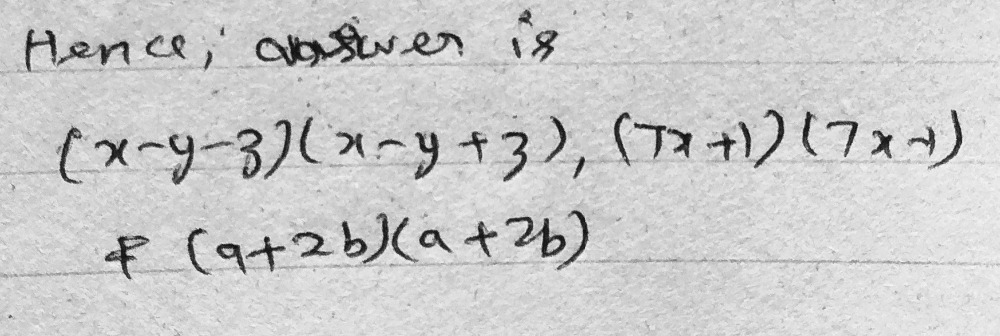 Hence, answer is
(x-y-3)(x-y+3), (7x+1)(7x-1)
& (a+2b)(a+2b)